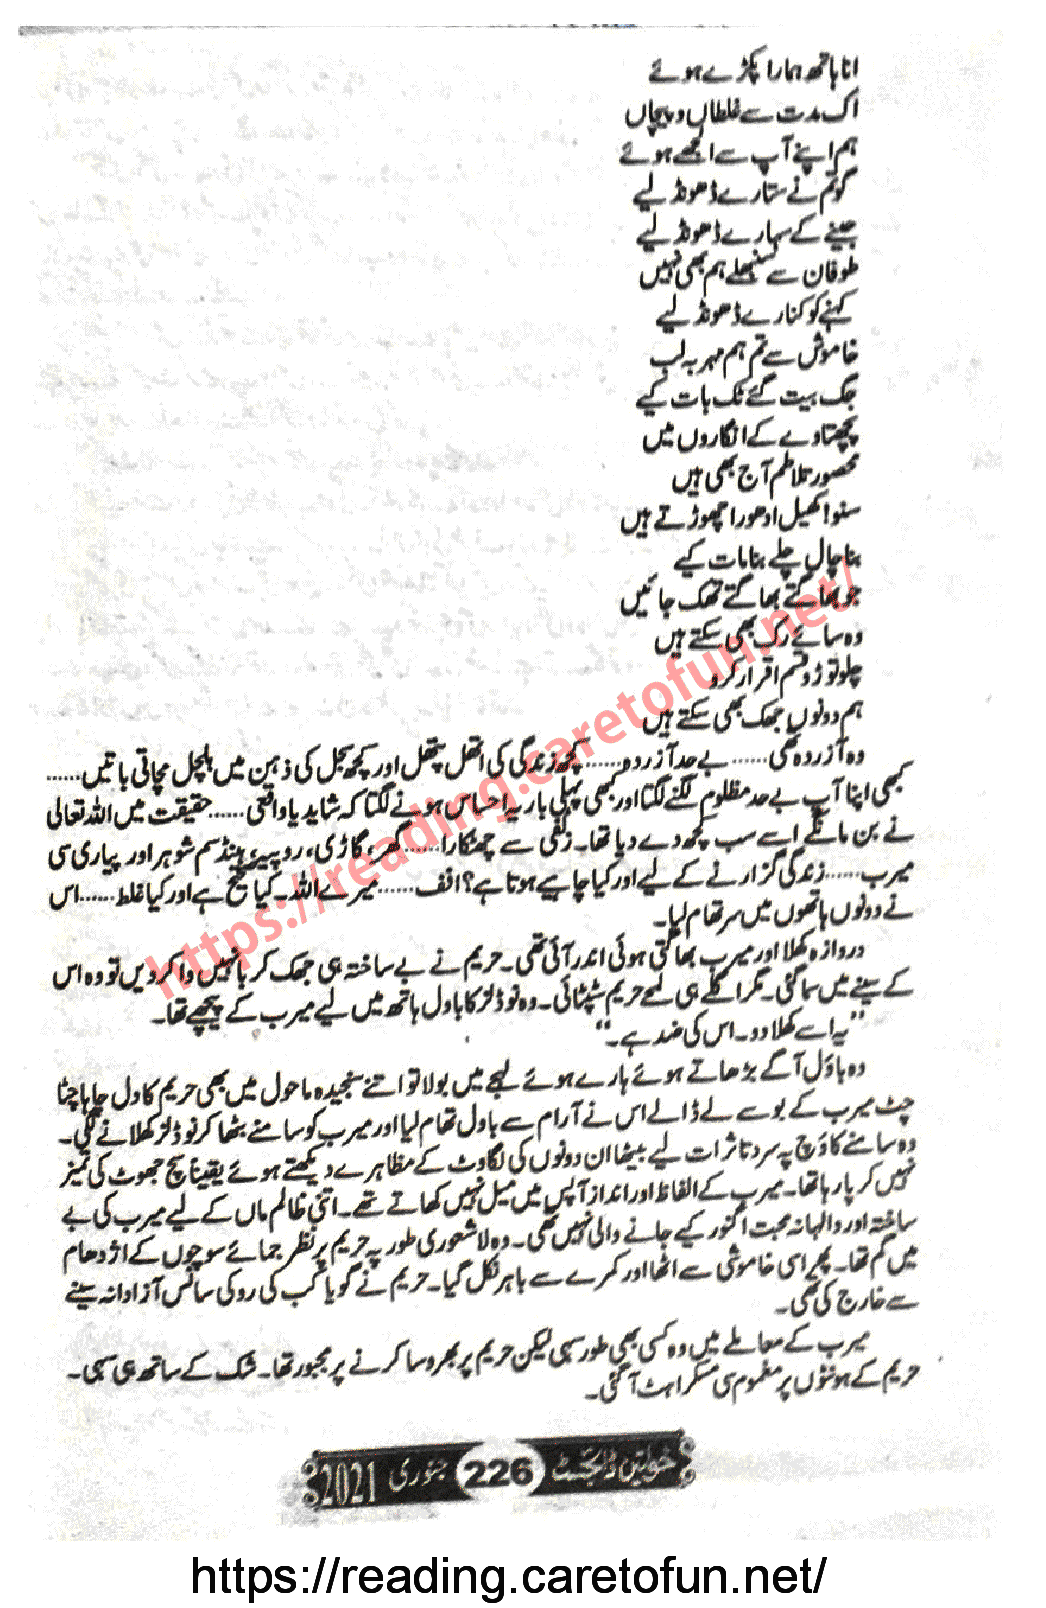 انا ہاتھ ہمارا پکڑے ہوئے
اک مدت سے غلطاں و پیچاں
ہم اپنے آپ سے الجھے ہوئے
گو تم نے ستارے ڈھونڈ لیے
جینے کے سہارے ڈھونڈ لیے
طوفان سے سنبھلے ہم بھی نہیں
کہنے کو کنارے ڈھونڈ لیے
خاموش سے تم ہم مہر بہ لب
جگ بیت گئے ٹک بات کیے
پچھتاوے کے انگاروں میں
محصور تلاطم آج بھی ہیں
سنو! کھیل ادھورا چھوڑتے ہیں
بنا چال چلے بنا مات کیے
جو بھاگتے بھاگتے تھک جائیں
وہ سائے رک بھی سکتے ہیں
چلو توڑو قسم اقرار کرو
ہم دونوں جھک بھی سکتے ہیں
وہ آزردہ تھی...... بے حد آزردہ...... کچھ زندگی کی اتھل پتھل اور کچھ بجل کی ذہن میں ہلچل مچاتی باتیں......
کبھی اپنا آپ بے حد مظلوم لگنے لگتا اور کبھی پہلی بار یہ احساس ہونے لگتا کہ شاید یا واقعی...... حقیقت میں اللہ تعالی
نے بن مانگے اسے سب کچھ دے دیا تھا۔ زلفی سے چھٹکارا...... گھر، گاڑی، روپیہ، ہینڈسم شوہر اور پیاری سی
میرب...... زندگی گزارنے کے لیے اور کیا چاہیے ہوتا ہے؟ اف...... میرے اللہ۔ کیا صحیح ہے اور کیا غلط...... اس
نے دونوں ہاتھوں میں سر تھام لیا۔
دروازہ کھلا اور میرب بھاگتی ہوئی اندر آئی تھی۔ حریم نے بے ساختہ ہی جھک کر بانہیں وا کر دیں تو وہ اس
کے سینے میں سما گئی۔ مگر اگلے ہی لمحے حریم سٹپٹائی۔ وہ نوڈلز کا باول ہاتھ میں لیے میرب کے پیچھے تھا۔
”یہ اسے کھلا دو۔ اس کی ضد ہے۔“
وہ باؤل آگے بڑھاتے ہوئے ہارے ہوئے لہجے میں بولا تو اتنے سنجیدہ ماحول میں بھی حریم کا دل چاہا چٹا
چٹ میرب کے بوسے لے ڈالے اس نے آرام سے باول تھام لیا اور میرب کو سامنے بٹھا کر نوڈلز کھلانے لگی۔
وہ سامنے کاؤچ پہ سرد تاثرات لیے بیٹھا ان دونوں کی لگاوٹ کے مظاہرے دیکھتے ہوئے یقیناً سچ جھوٹ کی تمیز
نہیں کر پا رہا تھا۔ میرب کے الفاظ اور انداز آپس میں میل نہیں کھاتے تھے۔ اتنی ظالم ماں کے لیے میرب کی بے
ساختہ اور والہانہ محبت اگنور کیے جانے والی نہیں تھی۔ وہ لاشعوری طور پہ حریم پر نظر جمائے سوچوں کے اژدھام
میں گم تھا۔ پھر اسی خاموشی سے اٹھا اور کمرے سے باہر نکل گیا۔ حریم نے گویا کب کی روکی سانس آزادانہ سینے
سے خارج کی تھی۔
میرب کے معاملے میں وہ کسی بھی طور سہی لیکن حریم پر بھروسا کرنے پر مجبور تھا۔ شک کے ساتھ ہی سہی۔
حریم کے ہونٹوں پر مغموم سی مسکراہٹ آ گئی۔
خواتین ڈائجسٹ 226 جنوری 2021
https://reading.caretofun.net/
https://reading.caretofun.net/